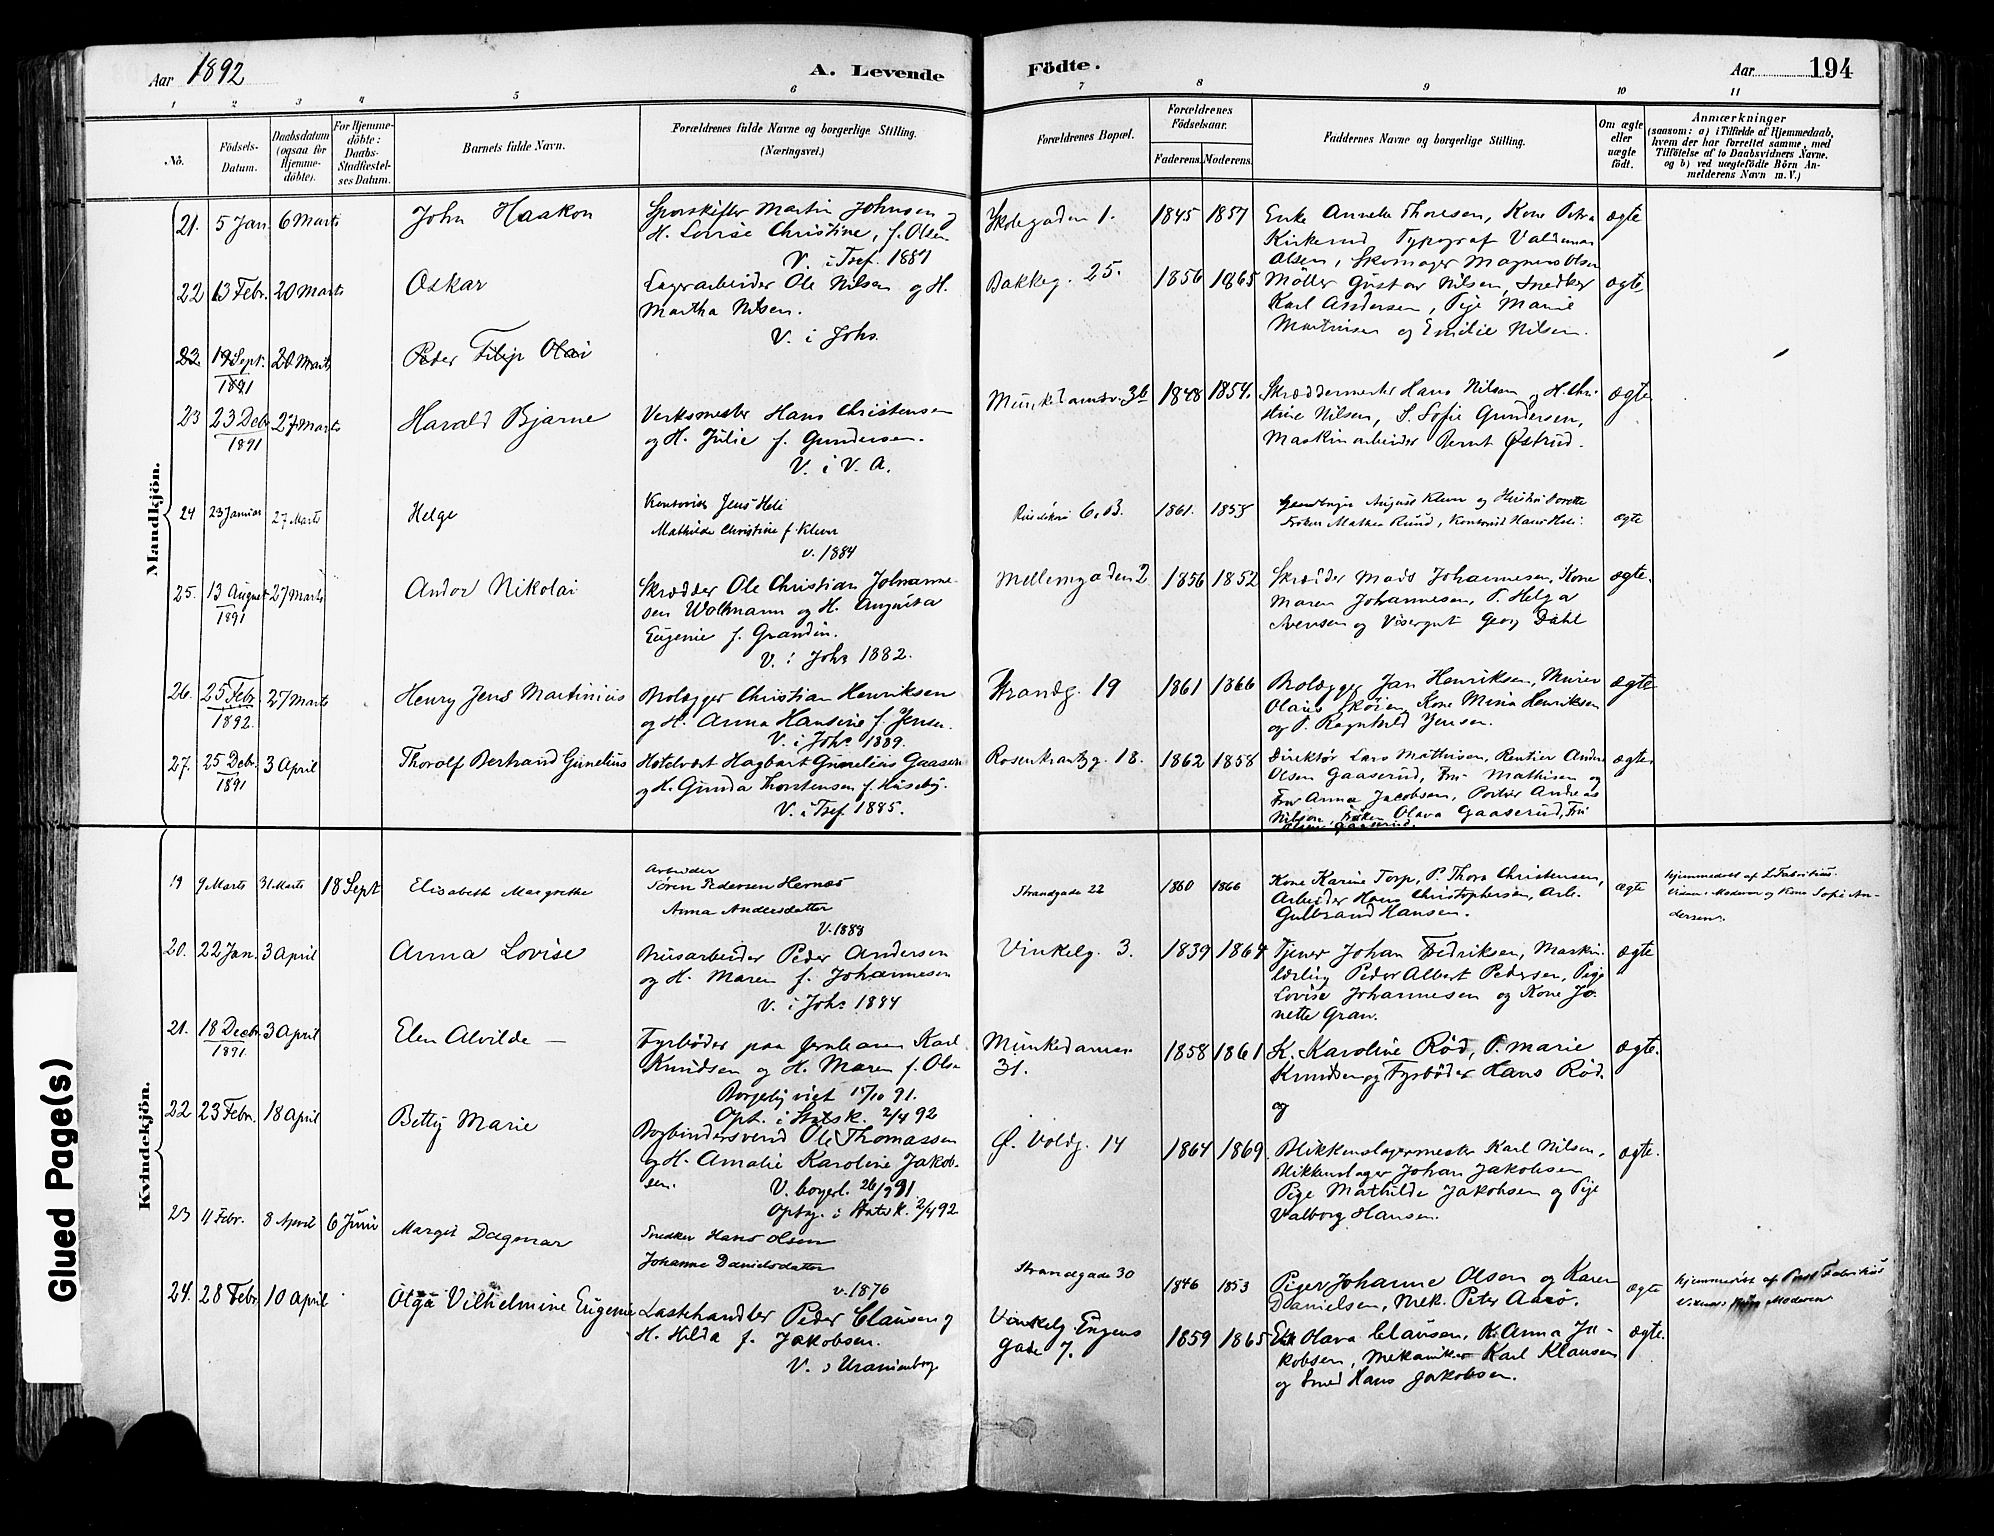 Aar 1892
A. Levende
Födte.
Aar 194
1 2 3 4 5 6 7 8 9 10 11
No.
Födsels-Datum.
Daabsdatum (ogsaa for Hjemme-döbte).
For Hjemme-döbte: Daabs-Stadfæstel-ses Datum.
Barnets fulde Navn.
Forældrenes fulde Navne og borgerlige Stilling. (Næringsvei.)
Forældrenes Bopæl.
Forældrenes Födselsaar.
Faderens. Moderens.
Faddernes Navne og borgerlige Stilling.
Om ægte eller uægte födt.
Anmærkninger
(saasom: a) i Tilfælde af Hjemmedaab,
hvem der har forrettet samme, med
Tilföielse af to Daabsvidners Navne.
og b) ved uægtefödte Börn An-
melderens Navn m.V.)
Mandkjön.
21. 5 Jan. 6 Marts John Haakon
Sporskifter Martin Johnsen
H. Lovise Christine, f. Olsen
V. i Tref. 1887
Skolegaden 1. 1845 1857
Enke Annette Thoresen, Kone Petra
Kirkerud Typograf Valdemar
Olsen, Skomager Magnus Olsen
ægte
22 13 Febr. 20 Marts Oskar
Lagerarbeider Ole Nilsen og H.
Martha Nilsen.
V. i Johs.
Bakkeg. 25. 1856 1865
Møller Gustav Nilsen, Snedker
Karl Andersen, Pige Marie
Martinsen og Emilie Nilsen.
ægte
22 19 Sept. 1891 20 Marts Peder Filip Olai
23 23 Debr 1891 27 Marts Harald Bjarne
Verksmester Hans Christensen
og H. Julie f. Gundersen.
V. i V. A.
Munkedamsv. 36 1848 1854.
Skræddermester Hans Nilsen og H. Chri-
stine Nilsen, S. Sofie Gundersen,
Maskinarbeider Bernt Østrud.
ægte
24 23 Januar 27 Marts Helge
Kontorist Jens Heli
Mathilde Christine f. Klem
v. 1884
6.B. 1861. 1855
August Klem og
Frøken Mathea Ruud, Kontorist Hans Heli.
ægte
25. 13 August 1891 27 Marts Andor Nikolai
Skrædder Ole Christian Johanne-
sen Wolkmann og H. Augusta
Eugenie f. Grandin.
V. i Johs 1882.
Mellemgaden 2 1856 1852
Skrædder Mads Johannesen, Kone
Maren Johannesen, P. Helga
Svensen og Visergut Georg Dahl
ægte.
26. 25 Febr 1892. 27 Marts Henry Jens Martinius
Brolægger Christian Henriksen
og H. Anna Hansine f. Jensen.
V. i Johs. 1889.
Strandg. 19 1861 1866
Brolægger Jan Henriksen, Murer
Olaus Skøien, Kone Mina Henriksen
og P. Ragnhild Jensen.
ægte
27. 25 Debr. 1891 3 April Thorolf Bertrand Gunelius
Hotelvært Hagbart Gunelius Gaasen
og H. Gunda Thorstensen f. Huseby.
V. i Tref 1885.
Rosenkrantzg. 18. 1862 1858
Direktør Lars Mathisen, Rentier Andr.
Olsen Gaaserud, Fru Mathisen og
Fru Anna Jacobsen, Portier Andreas
Nilsen, Frøken Olava Gaaserud, Fru
Olsen Gaaserud.
ægte
Kvindekjön.
19 9 Marts 31 Marts 18 Sept Elisabeth Margrethe
Arbeider
Søren Pedersen Hernæs
Anna Andersdatter
V. 1888
Strandgade 22 1860 1866
Kone Karine Torp, P. Thora Christensen,
Arbeider Hans Christophersen, Arb.
Gulbrand Hansen.
ægte
Hjemmedøbt af L. Fabritius.
Vidner: Moderen og Kone Sofie An-
dersen.
20. 22 Jan. 3 April Anna Lovise
Brusarbeider Peder Andersen
og H. Maren f. Johannesen
V. i Johs 1884
Vinkelg. 3. 1839 1864
Tjener Johan Fredriksen, Maskin-
lærling Peder Albert Pedersen, Pige
Lovise Johannesen og Kone Jo-
nette Gran.
ægte
21. 18 Decbr 1891. 3 April Elen Alvilde —
Fyrbøder paa Jernbanen Karl
Knudsen og H. Maren f. Olsen
Borgerlig viet 15/10 91.
Opt. i Statsk. 2/4 92
Munkedamsv.
31. 1858 1861
K. Karoline Rød, P. Marie
Knudsen og Fyrbøder Hans Rød.
og
ægte.
22 23 Febr. 18 April Betty Marie
Bogbindersvend Ole Thomassen
og H. Amalie Karoline Jakob-
sen. V. borgerl. 26/9 91
Optog. i Statsk. 2/4 92
Ø. Voldg. 14 1864 1869.
Blikkenslagermester Karl Nilsen,
Blikkenslager Johan Jakobsen
Pige Mathilde Jakobsen og Pige
Valborg Hansen.
ægte.
23 11 Febr. 8 April 6 Juni Margit Dagmar
Snedker Hans Olsen
Johanne Danielsdatter
v. 1876
Strandgade 30 1846 1853
Piger Johanne Olsen og Karen
Danielsen, Mek. Peter Aasø.
ægte
Hjemmedøbt af Past Fabritius
Vidner Moderen
24. 28 Febr. 10 April Olga Vilhelmine Eugenie
Lastehandler Peder Clausen og
H. Hilda f. Jakobsen.
V. i Uranienborg
Vinkelg. Engens
Gade 7. 1859 1865
Olava Clausen, K. Anna Ja-
kobsen, Mekaniker Karl Klausen
og Smed Hans Jakobsen.
ægte.
Glued Page(s)